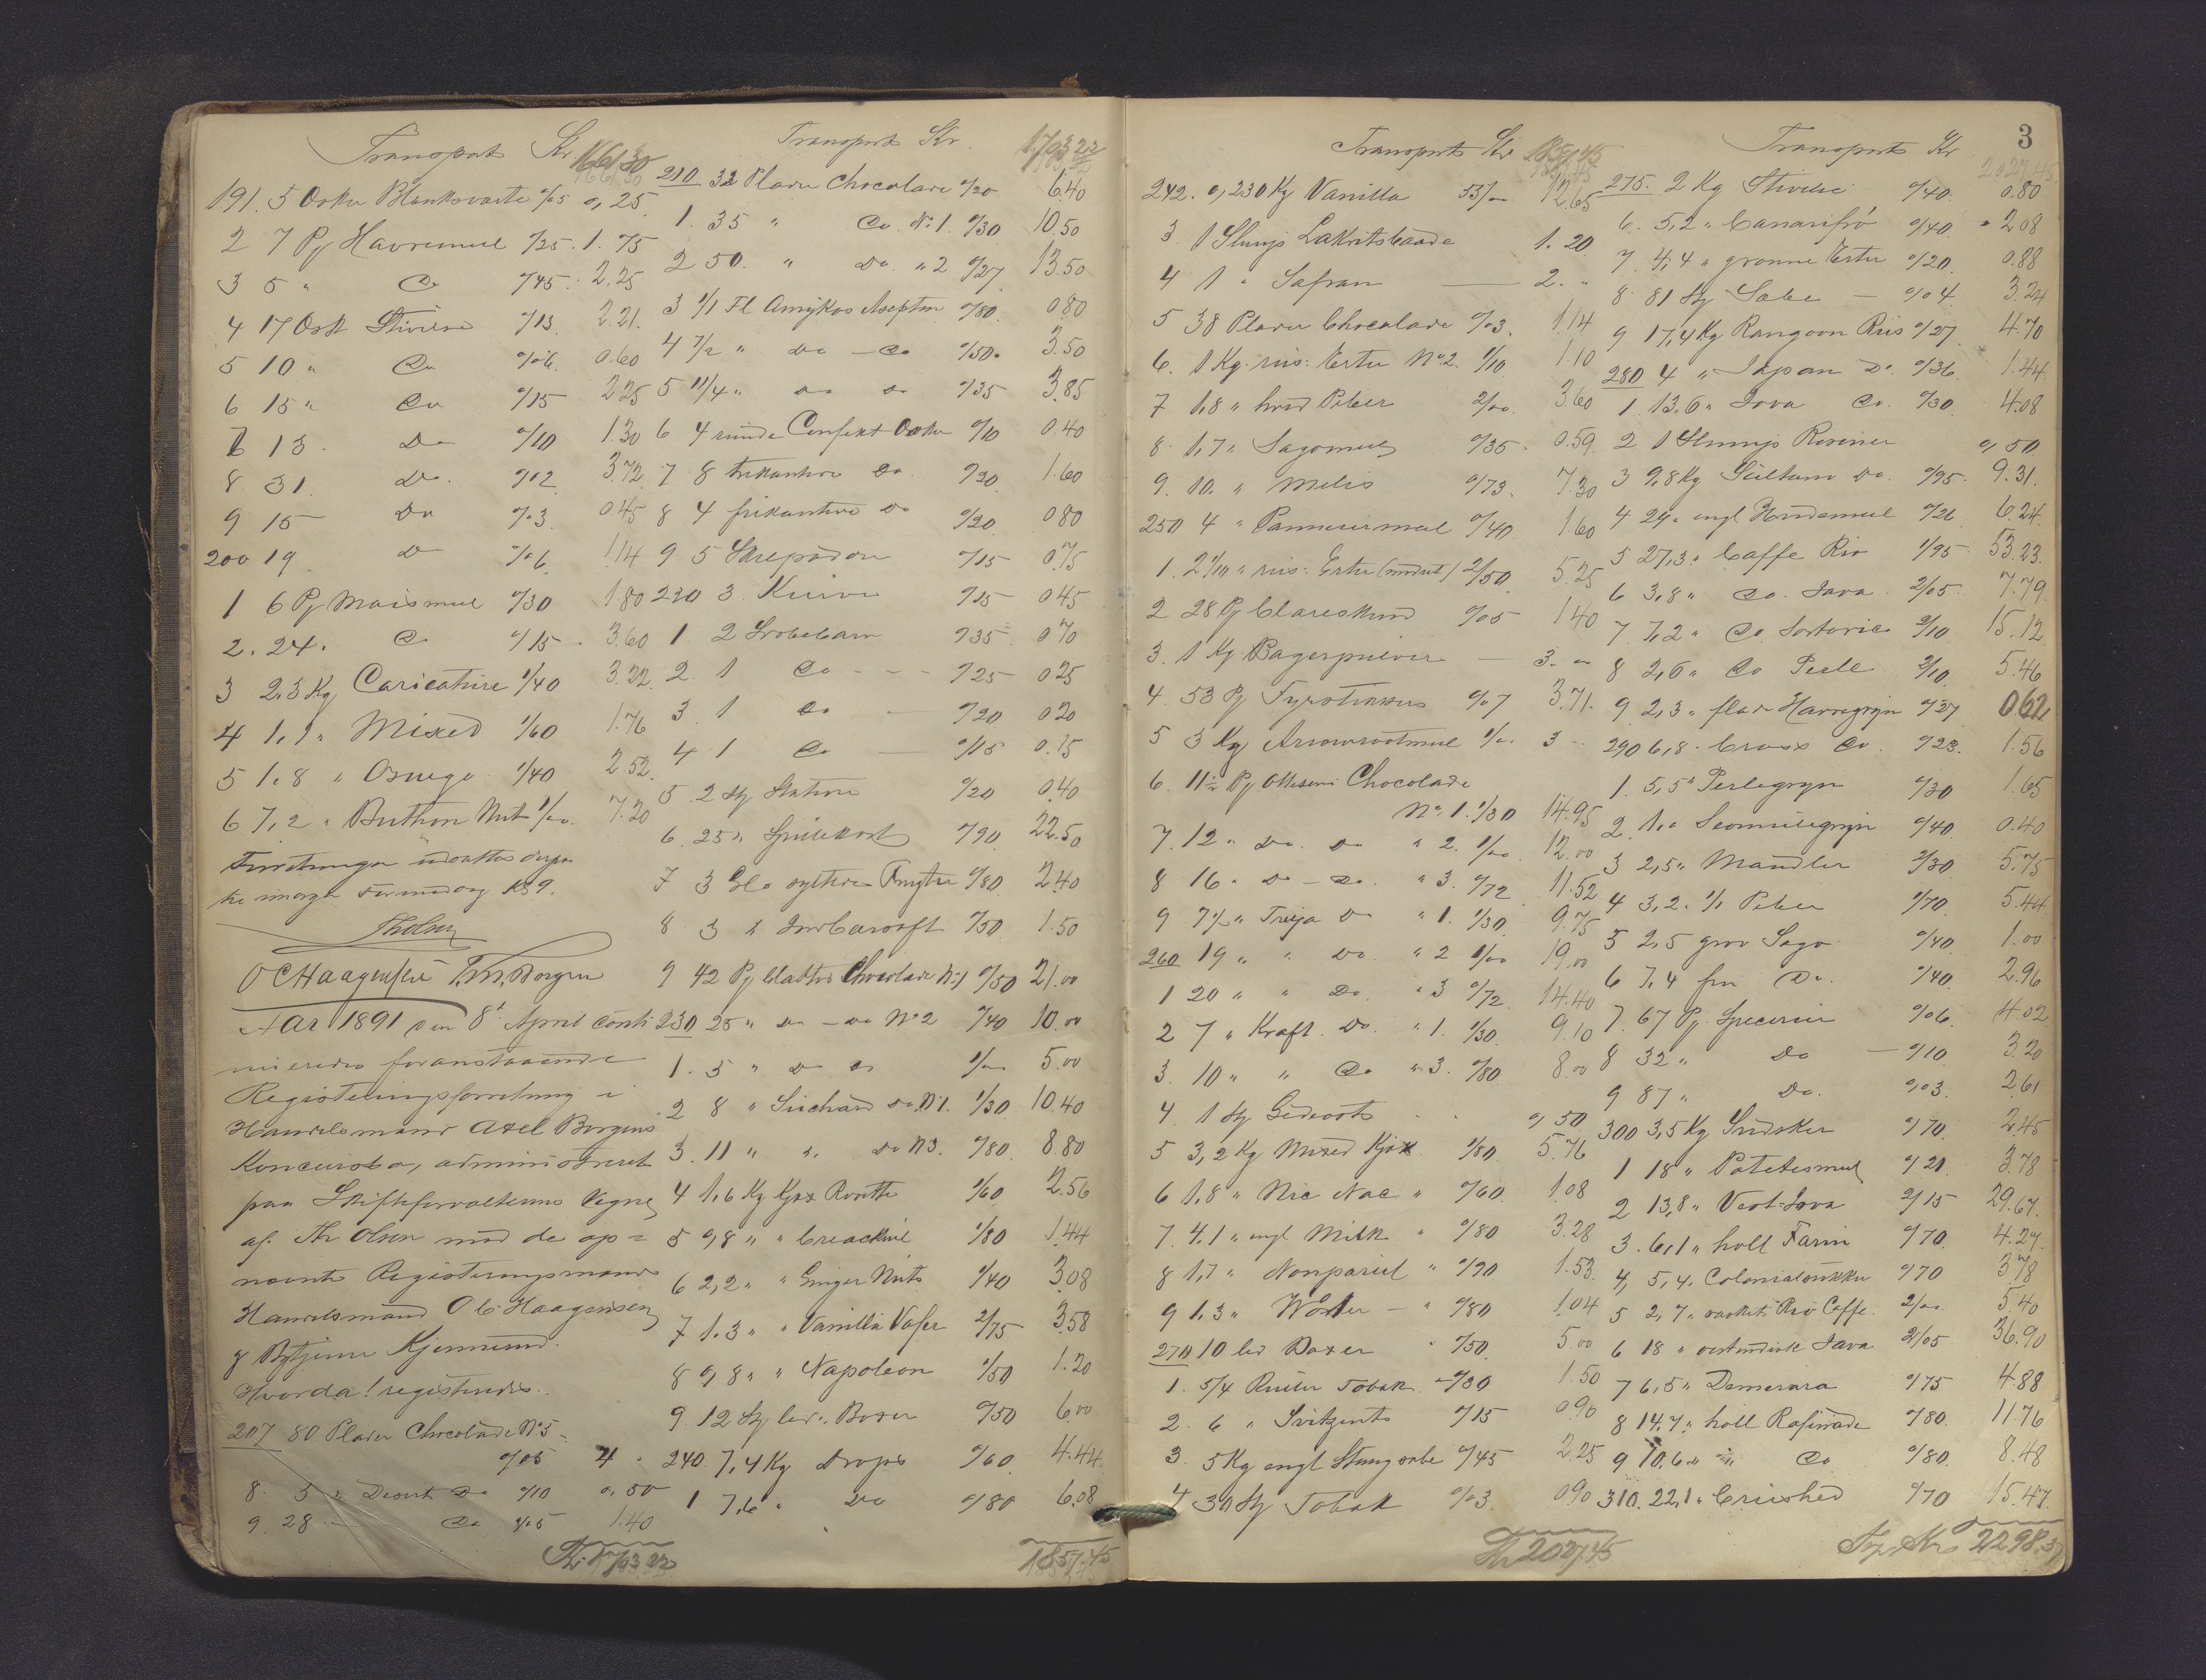 Transport Kr 1661.30
191. 5 Æsker Blanksværte 0/05 0,25
2 7 Pj Havremel 0/25. 1.75
3 5 " Do 0/45. 2.25
4 17 Æsk Stivelse 0/13. 2.21.
5 10 " Do 0/06. 0.60
6 15 " Do 0/15 2.25
7 13. Do 0/10 1.30
8 31. Do. 0/12. 3.72
9 15 Do 0/03. 0.45
200 19 Do 0/06. 1.14
1 6 Pj Maismel 0/30 1.80
2. 24. Do 0/15 3.60
3 2,3 Kg Caricature 1/40 3.22.
4 1,1 " Mixed 1/60 1.76
5 1.8 " Osvego 1/40 2.52.
6 7,2 " Button Nut 1/00. 7.20
Forretningen udsattes
til imorgen Formiddag Kl 9.
Th Olsen
O C Haagensen T. M. Borgen
Aar 1891 den 8de April conti
nueredes foranstaaende
Registreringsforretning i
Handelsmand Axel Borgens
Koncursbo, administreret
paa Skifteforvalterens Vegne
af Th Olsen med de op=
nævnte Registreringsmænd
Handelsmand O C Haagensen
g Kjennerud.
Hvorda! registreredes.
207 80 Plader Chocolade No 5
0/05 4 "
8. 5 " Desert Do 0/10 0,50
9. 28 — Do 0/05 1.40
Kr. 1703.22
Transport Kr. 1703.22
210 32 Plader Chocolade 0/20 6.40
1. 35 " Do. No 1. 0/30 10.50
2 50. " Do. " 2 0/27. 13.50
3 1/1 Fl Amykos Aseptin 0/80. 0.80
4 7/2 " Do — Do 0/50. 3.50
5 11/4 " Do Do 0/35 3.85
6 4 runde Confekt Æsker 0/10 0.40
7 8 trekantede Do 0/20 1.60
8 4 firkantede Do 0/20 0.80
9 5 0/15 0.75
220 3 Kurve 0/15 0.45
1. 2 0/35 0.70
2. 1 Do - - - 0/25 0.25
3. 1 Do — 0/20 0.20
4 1 Do — 0/15 0.15
5 2 St Statuer 0/20 0.40
6. 25 " Spillekort 0/90. 22.50
7 3 Gl. syltede Frugter 0/80 2.40
8 3 " 0/50 1.50
9 42 Pj Chocolade No 1 0/50 21.00
230 25 " Do — Do No 2 0/40 10.00
1. 5 " Do Do 1/00 5.00
2 8 " Suchard Do No 1. 1/30 10.40
3. 11 " ". Do No 3. 0/80. 8.80
4 1,6 Kg Kjæx Rosette 1/60 2.56
5 0,8 " " 1/80 1.44
6 2,2 " " Ginger Nuts 1/40 3.08
7 1.3 " " Vanilla Vafer 2/75 3.58
8 0,8 " " Napoleon 1/50 1.20
9 12 St led. Boxer 0/50 6.00
240. 7,4 Kg Drops 0/60. 4.44.
1 7,6 " Do 0/80 6.08
1857.45
3
Transport Kr 1857.45
242. 0,230 Kg Vanilla 55/00 12.65
3. 1 Slump Lakritsbaade 1.20
4 1 " Safran — 2. "
5 38 Plader Chocolade 0/03. 1.14
6. 1 Kg. rus: Erter No 2. 1/10 1.10
7 1,8 " hvid Peber 2/00. 3.60
8. 1,7 " Sagomel 0/35. 0.59
9. 10. " Melis 0/73. 7.30
250 4 " Panneermel 0/40 1.60
1. 2 1/10 " rus: Erter 2/50 5.25
2 28 Pj 0/05 1.40
3. 1 Kg Bagerpulver — 3. "
4. 53 Pj Fyrstikker 0/07 3.71.
5 3 Kg Arrowrootmel 1/00. 3 "
6. 11 1/2 Pj Chocolade
No 1. 1/30 14.95
7. 12 " Do. Do " 2. 1/00. 12.00
8 16. " Do — Do. " 3. 0/72 11.52
9 7 1/2 " Freja Do " 1. 1/30. 9.75
260 19 " " Do " 2 1/00 19.00
1 20 " " Do. " 3 0/72. 14.40
2 7 " Kraft. Do. " 1. 1/30. 9.10
3. 10 " " Do " 3. 0/80. 8.00
4 1 St 0,50
5 3,2 Kg Mixed Kjæx 1/80 5.76
6 1,8 " Nic Nac " 0/60. 1.08
7. 4.1 " engl Milk " 0/80 3.28
8 1,7 " Nonpareil " 0/90 1.53.
9 1.3 " — " 0/80 1.04
270 10 led Boxer " 0/50 5.00
1. 5/4 Ruller Tobak 0/30 1.50
2. 6 " 0/15 0.90
3. 5 Kg engl Stangsæbe 0/45 2.25
4 30 St Tobak 0/03. 0.90
Kr 2027.45
Transport Kr 2027.45
275. 2 Kg Stivelse 0/40. 0.80
6. 5,2 " Canarifrø 0/40. 2.08
7. 4,4 " grønne Erter 0/20. 0.88
8 81 St Sæbe — 0/04. 3.24
9 17,4 Kg Rangoon Riis 0/27 4.70
280 4 " Japan Do. 0/36. 1.44.
1. 13.6 " Java Do. 0/30 4.08
2 1 Slump Rosiner 0,50
3 9,8 Kg Sultana Do. 0/95. 9.31.
4 24 " engl Hvedemel 0/26 6.24
5 27,3 " Caffe Rio 1/95. 53.23
6 3,8 " Do. Java. 2/05. 7.79.
7 7,2 " Do. 2/10 15.12
8 2,6 " Do Perle 2/10 5.46
9 2,3 " flade Havregryn 0/27 0.62
290 6,8 " Do. 0/23. 1.56
1. 5,5 " Perlegryn 0/30 1.65
2 1,0 Semulegryn 0/40 0.40
3 2,5 " Mandler 2/30 5.75
4 3,2. 1/1 Peber 1/70 5.44
5 2,5 grov Sago 0/40 1.00
6 7,4 fin Do. 0/40. 2.96
7. 67 Pj. Specerier 0/06. 4.02
8 32 " Do — 0/10 3.20
9 87 " Do. 0/03. 2.61
300 3,5 Kg Svidsker 0/70. 2.45
1 18 " Potetesmel 0/21 3.78
2 13,8 " Vest-Java 2/15 29.67.
3. 6,1 " holl Farin 0/70 4.27
4, 5,4. Colonialsukker 0/70 3.78
5 2,7 " Rio Caffe. 2/00. 5.40
6 18 " ostindisk Java 2/05 36.90
7 6,5 " Demerara 0/75 4.88
8 14,7 " holl Rafinade 0/80. 11.76
9 10,6 " " Do 0/80. 8.48
310. 22,1 " Crushed 0/70 15.47.
Trp. Kr. 2298.37